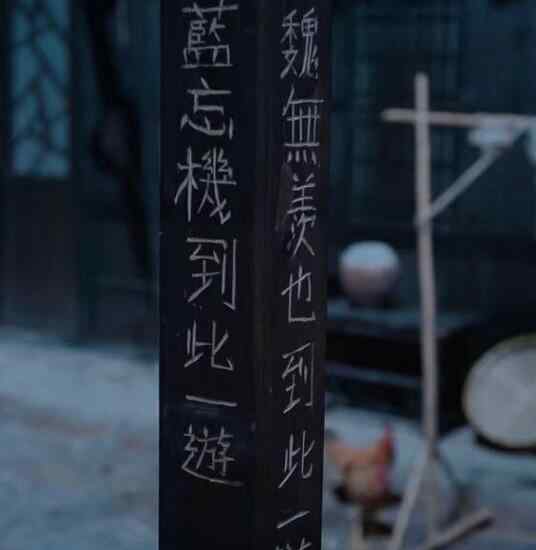 藍忘機到此一遊
魏無羨也到此一